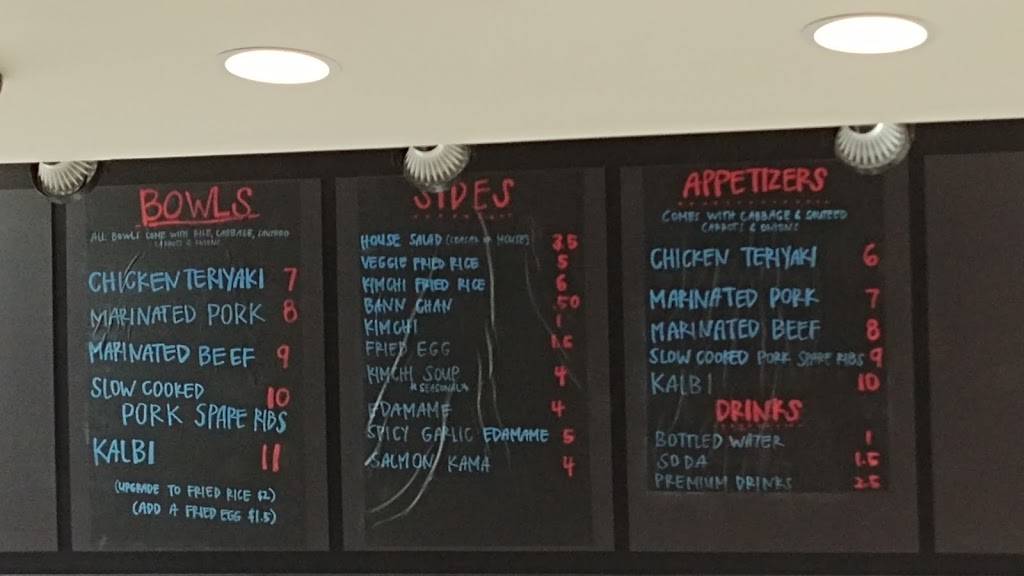 BOWLS
ALL BOWLS COME WITH RICE, CABBAGE, SAUTEED
CARROTS & ONIONS
CHICKEN TERIYAKI 7
MARINATED PORK 8
MARINATED BEEF 9
SLOW COOKED 10
PORK SPARE RIBS
KALBI 11
(UPGRADE TO FRIED RICE $2)
(ADD A FRIED EGG $1.5)
SIDES
HOUSE SALAD HOUSE) 3.5
VEGGIE FRIED RICE 5
KIMCHI FRIED RICE 6
BANN CHAN .50
KIMCHI 1
FRIED EGG 1.5
KIMCHI SOUP 4
*SEASONAL*
EDAMAME 4
SPICY GARLIC EDAMAME 5
SALMON KAMA 4
APPETIZERS
COMES WITH CABBAGE & SAUTEED
CARROTS & ONIONS
CHICKEN TERIYAKI 6
MARINATED PORK 7
MARINATED BEEF 8
SLOW COOKED PORK SPARE RIBS 9
KALBI 10
DRINKS
BOTTLED WATER 1
SODA 1.5
PREMIUM DRINKS 2.5